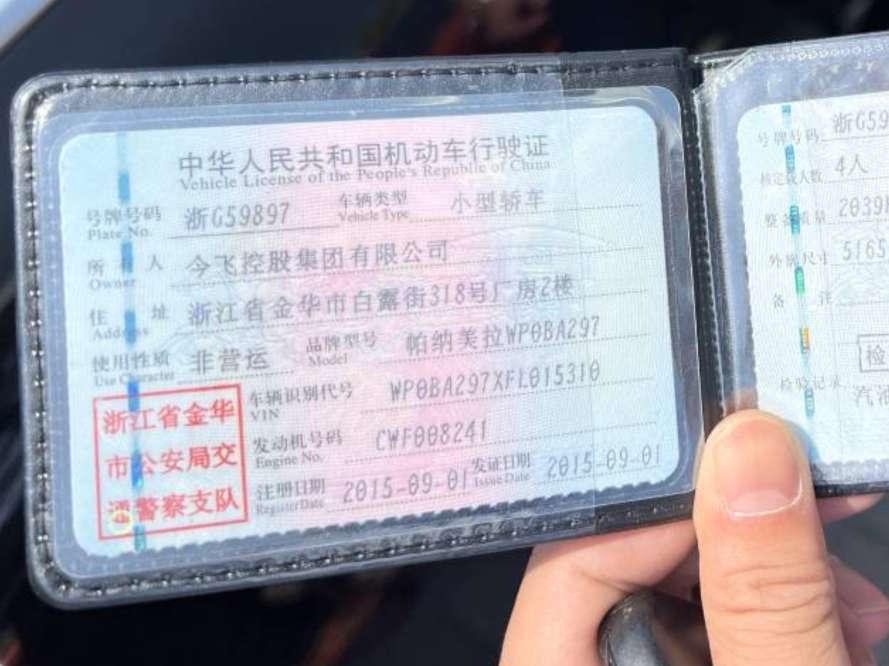 中华人民共和国机动车行驶证
Vehicle License of the People's Republic of China
号牌号码 浙G59897 车辆类型 小型轿车
Plate No. Vehicle Type
所有人 今飞控股集团有限公司
Owner
住址 浙江省金华市白露街318号厂房2楼
Address
使用性质 非营运 品牌型号 帕纳美拉WP0BA297
Use Character Model
车辆识别代号 WP0BA297XFL015310
VIN
发动机号码 CWF008241
Engine No.
注册日期 2015-09-01 发证日期 2015-09-01
Register Date Issue Date
浙江省金华
市公安局交
通警察支队
号牌号码 浙G59
核定载人数 4人
整备质量 2039
外廓尺寸 5165
备注
检
检验记录
汽油